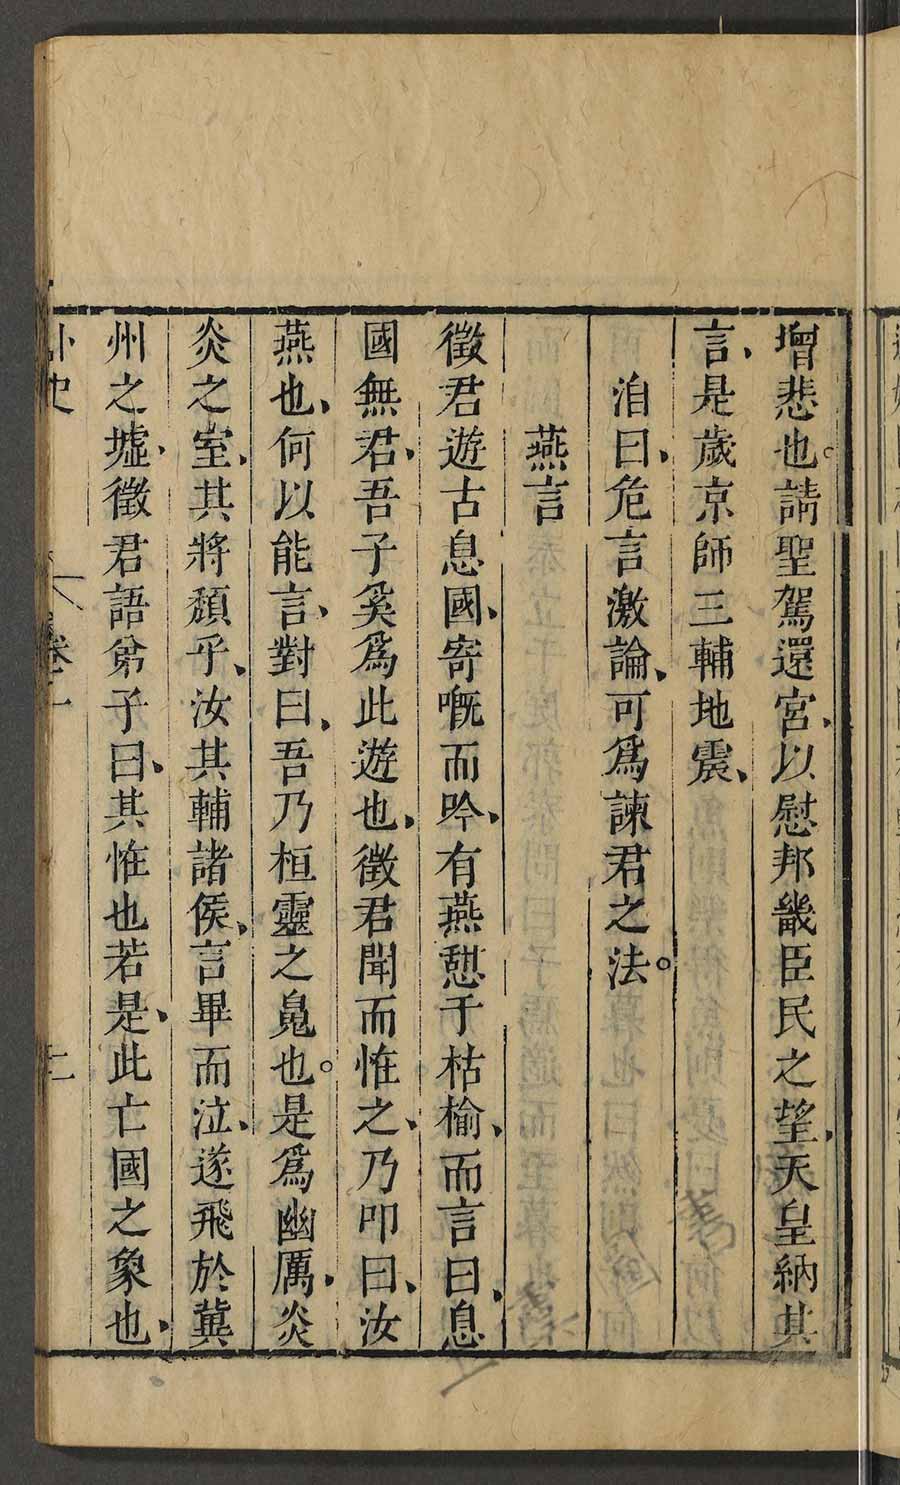 增悲也。請聖駕還宮、以慰邦畿臣民之望、天皇納其
言、是歲京師三輔地震、
洎曰、危言激論、可爲諫君之法。
燕言
徵君遊古息國、寄嘅而吟、有燕憇于枯榆、而言曰、息
國無君、吾子奚爲此遊也、徵君聞而惟之、乃叩曰、汝
燕也、何以能言、對曰、吾乃桓靈之鳬也。是爲幽厲、炎
炎之室、其將頽乎、汝其輔諸侯、言畢而泣、遂飛於冀
州之墟、徵君語弟子曰、其惟也若是、此亡國之象也、
外史 卷一